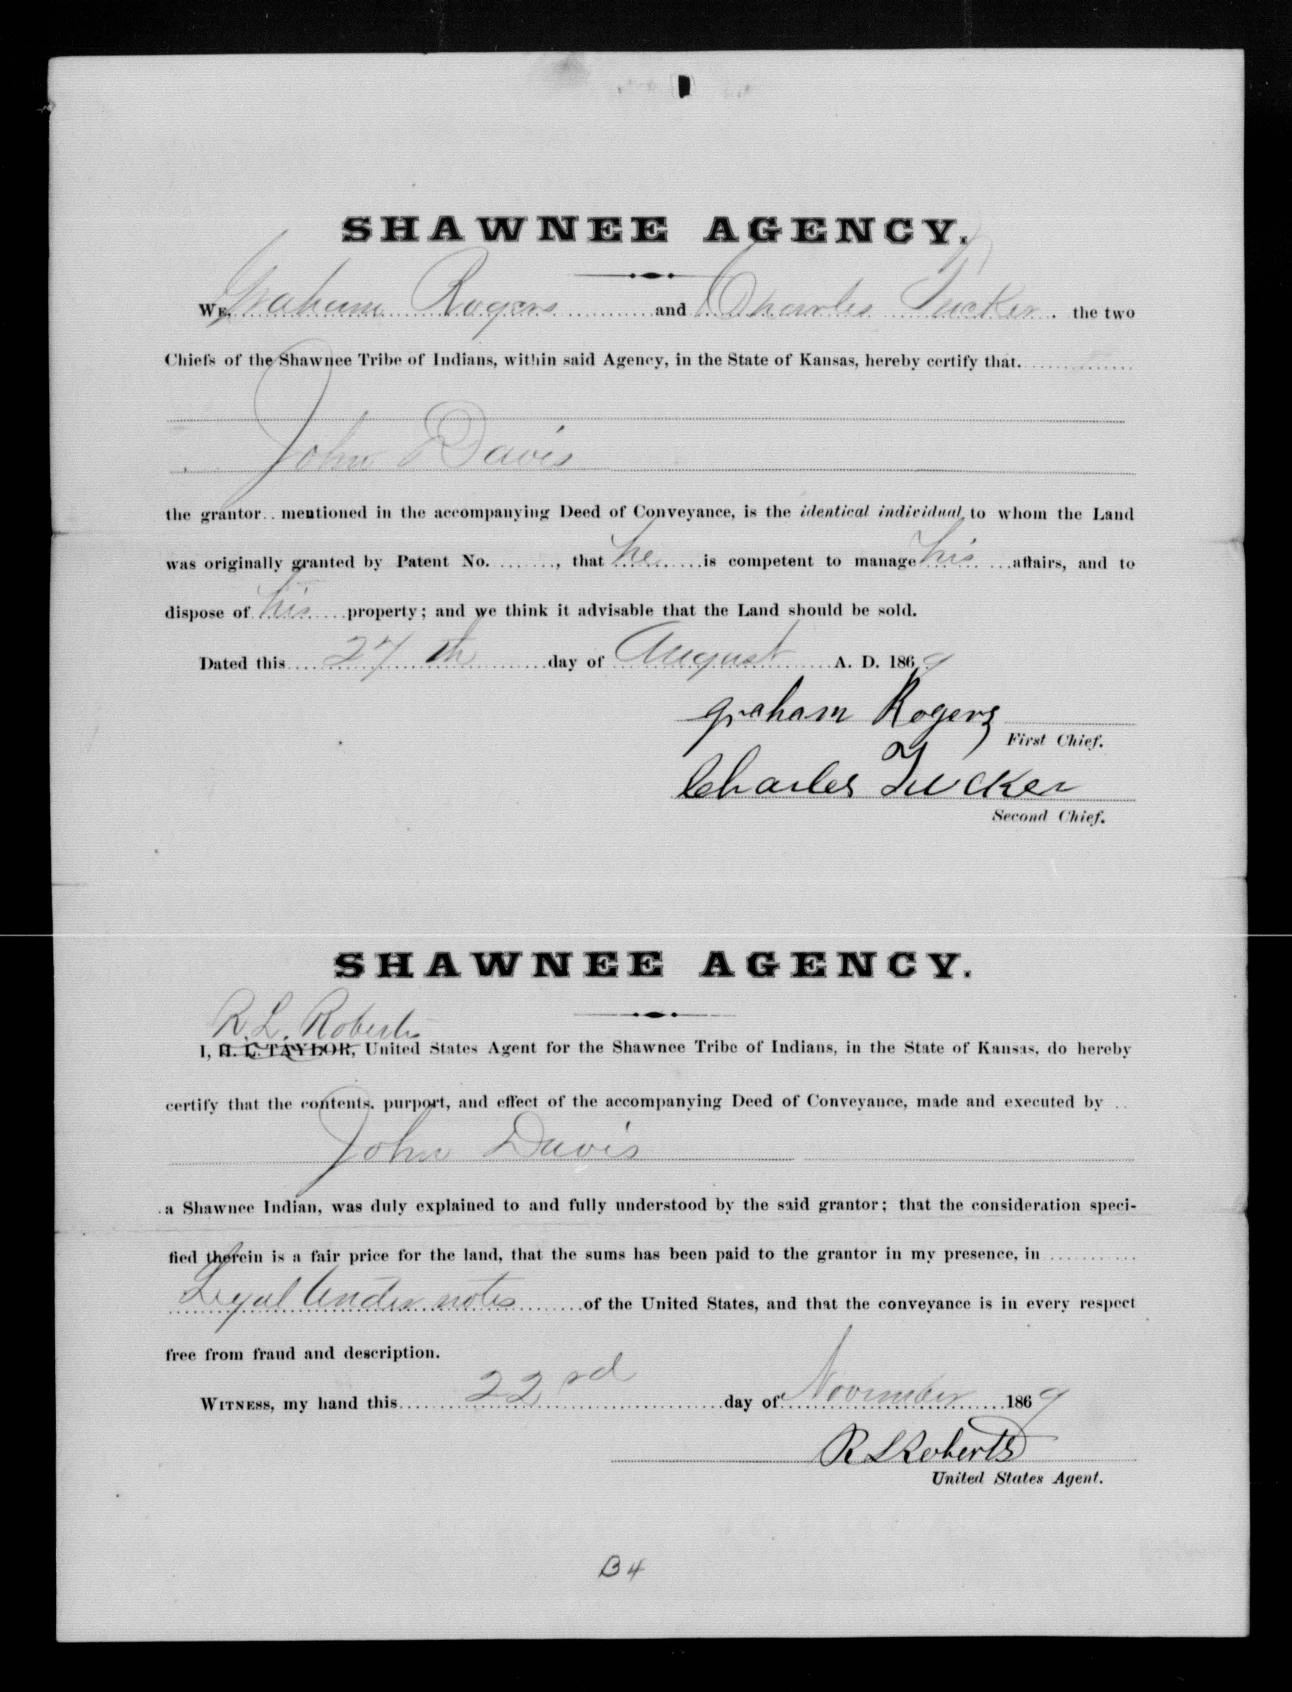 SHAWNEE AGENCY.
WE, Graham Rogers and Charles Tucker. the two
Chiefs of the Shawnee Tribe of Indians, within said Agency, in the State of Kansas, hereby certify that.
John Davis
the grantor mentioned in the accompanying Deed of Conveyance, is the identical individual, to whom the Land
was originally granted by Patent No. , that he is competent to manage his affairs, and to
dispose of his property; and we think it advisable that the Land should be sold.
Dated this 27th day of August A. D. 1869
Graham Rogers
First Chief.
Charles Tucker
Second Chief.
SHAWNEE AGENCY.
R. L. Roberts
I, H. L. TAYLOR, United States Agent for the Shawnee Tribe of Indians, in the State of Kansas, do hereby
certify that the contents, purport, and effect of the accompanying Deed of Conveyance, made and executed by
John Davis
a Shawnee Indian, was duly explained to and fully understood by the said grantor; that the consideration speci-
fied therein is a fair price for the land, that the sums has been paid to the grantor in my presence, in
Legal tender notes of the United States, and that the conveyance is in every respect
free from fraud and description.
WITNESS, my hand this 22rd day of November 1869
R L Roberts
United States Agent.
B4